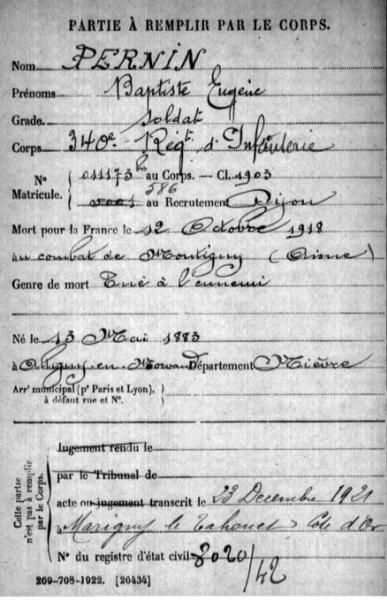 PARTIE À REMPLIR PAR LE CORPS.
Nom PERNIN
Prénoms Baptiste Eugène
Grade Soldat
Corps 340e Régt d'Infanterie
N° 011173 bis au Corps. — Cl. 1903
Matricule. 586 au Recrutement Dijon
Mort pour la France le 12 Octobre 1918
au combat de Montigny (Aisne)
Genre de mort Tué à l'ennemi
Né le 13 Mai 1883
à Alligny-en-Morvan Département Nièvre
Arrt municipal (pr Paris et Lyon),
à défaut rue et N°.
Cette partie
n'est pas à remplir
par le Corps.
Jugement rendu le
par le Tribunal de
acte ou jugement transcrit le 23 Decembre 1921
Marigny le Cahouet Côte d'Or
N° du registre d'état civil 8020/42
269-708-1922. [26434]